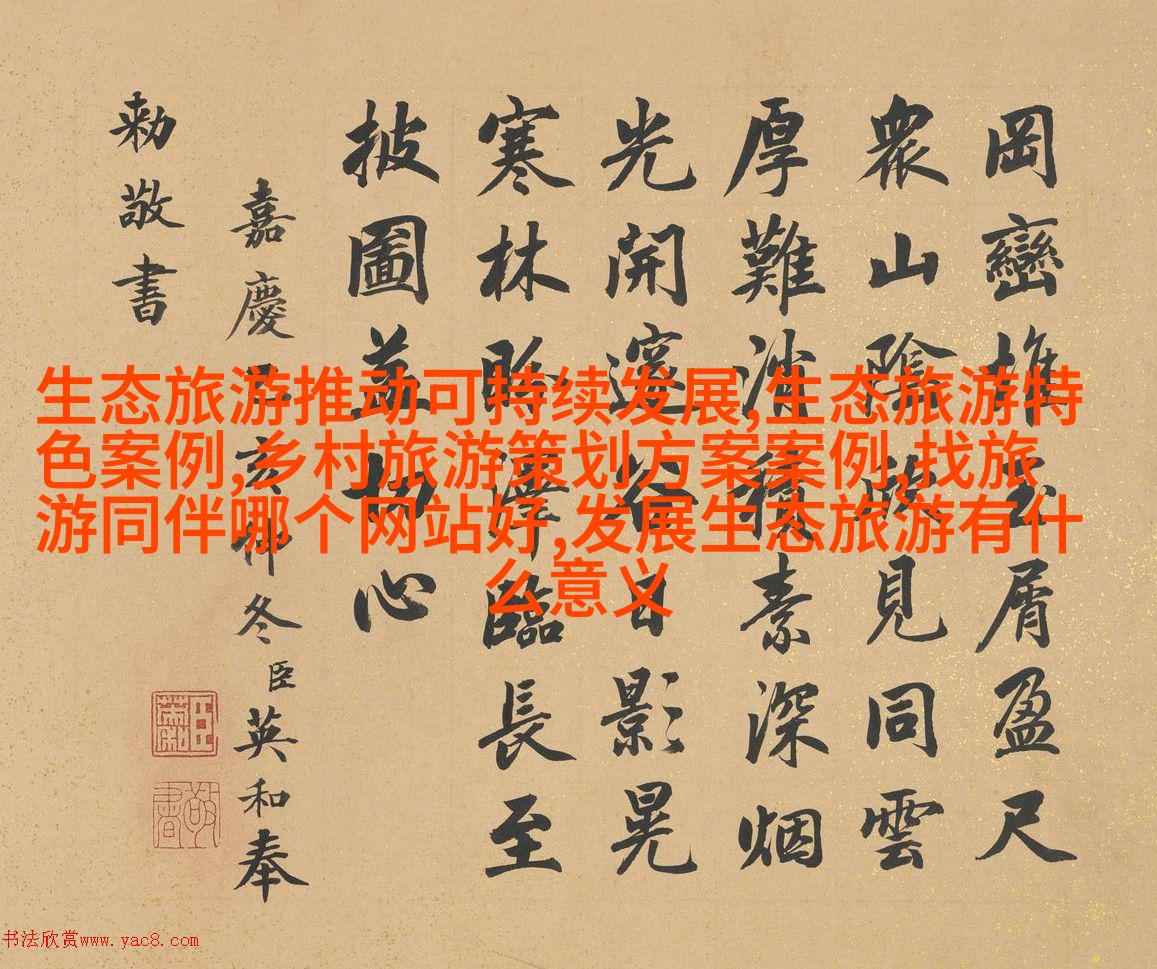 生态旅游推动可持续发展,生态旅游特
色案例,乡村旅游策划方案案例,找旅
游同伴哪个网站好,发展生态旅游有什
么意义
岡巒堆玉屑盈尺
衆山陰見同雲
厚難消積素深烟
光開邃谷日影晃
寒林臨長至
披圖心
嘉慶乙亥仲冬臣英和奉
勅敬書
敬書
书法欣赏www.yac8.com